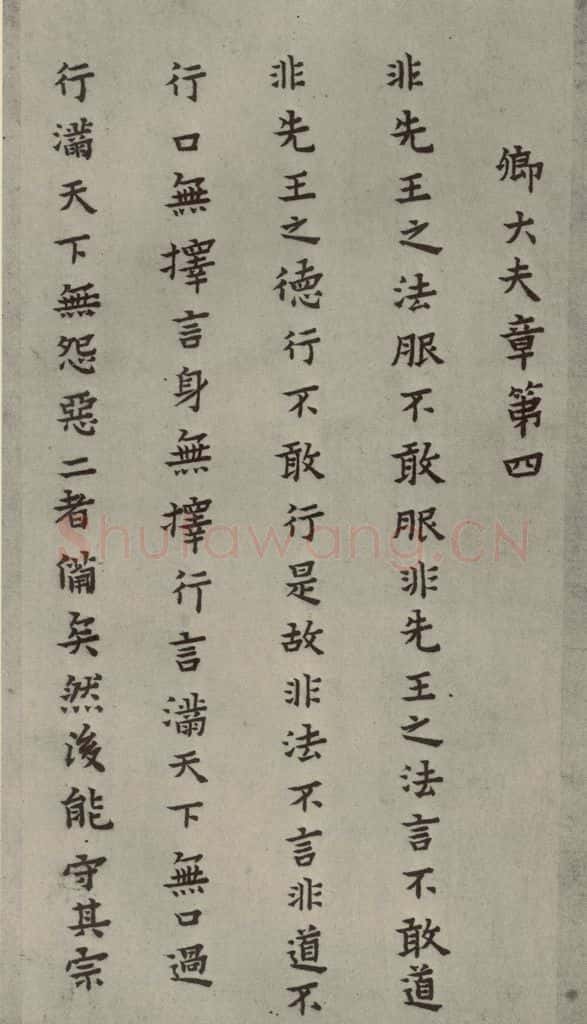 卿大夫章第四
非先王之法服不敢服非先王之法言不敢道
非先王之德行不敢行是故非法不言非道不
行口無擇言身無擇行言滿天下無口過
行滿天下無怨惡二者備矣然後能守其宗
Shufawang.CN